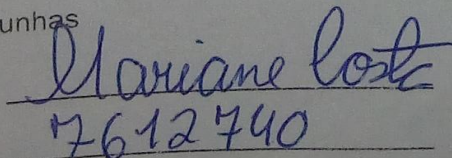 unhas
Mariane Costa
7612740